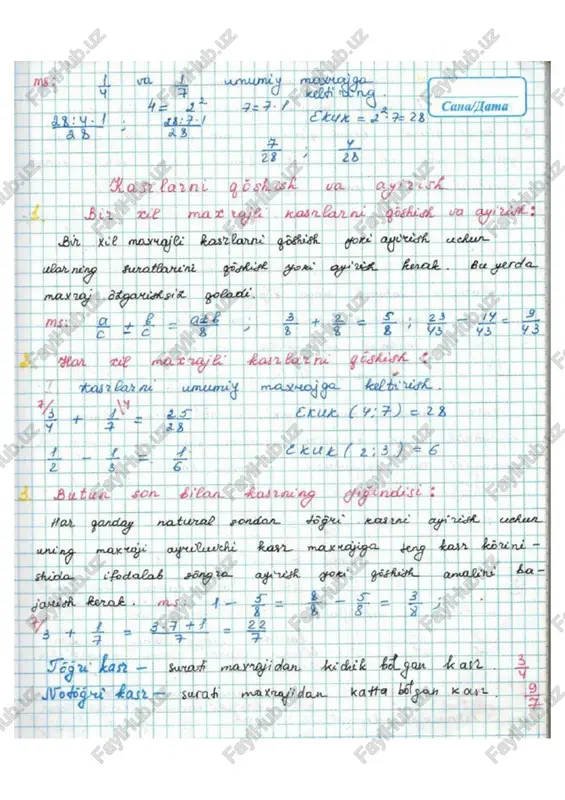 ms: 1/4 va 1/7 umumiy maxrajga
keltiring.
Сана/Дата
4 = 2² 7 = 7·1
28:4·1/28 ; 28:7·1/28 ЕКИК = 2²·7 = 28
7/28 ; 4/28
Kasrlarni qöshish va ayirish
1. Bir xil maxrajli kasrlarni qöshish va ayirish:
Bir xil maxrajli kasrlarni qöshish yoki ayirish uchun
ularning suratlarini qöshish yoki ayirish kerak. Bu yerda
maxraj özgarishsiz qoladi.
ms: a/c ± b/c = a±b/8 ; 3/8 + 2/8 = 5/8 ; 23/43 − 14/43 = 9/43
2. Har xil maxrajli kasrlarni qöshish :
! Kasrlarni umumiy maxrajga keltirish.
7/ 3/4 + 1/7 \4 = 25/28 ЕКИК (4;7) = 28
1/2 − 1/3 = 1/6 ЕКИК (2;3) = 6
3. Butun son bilan kasrning yiğindisi :
Har qanday natural sondan töğri kasrni ayirish uchun
uning maxraji ayriluvchi kasr maxrajiga teng kasr körini-
shida ifodalab söngra ayirish yoki qöshish amalini ba-
jarish kerak. ms: 1 − 5/8 = 8/8 − 5/8 = 3/8 ;
7/ 3 + 1/7 = 3·7+1/7 = 22/7
Töğri kasr – surati maxrajidan kichik bölgan kasr. 3/4
Notöğri kasr – surati maxrajidan katta bölgan kasr. 9/7
FaylHub.uz